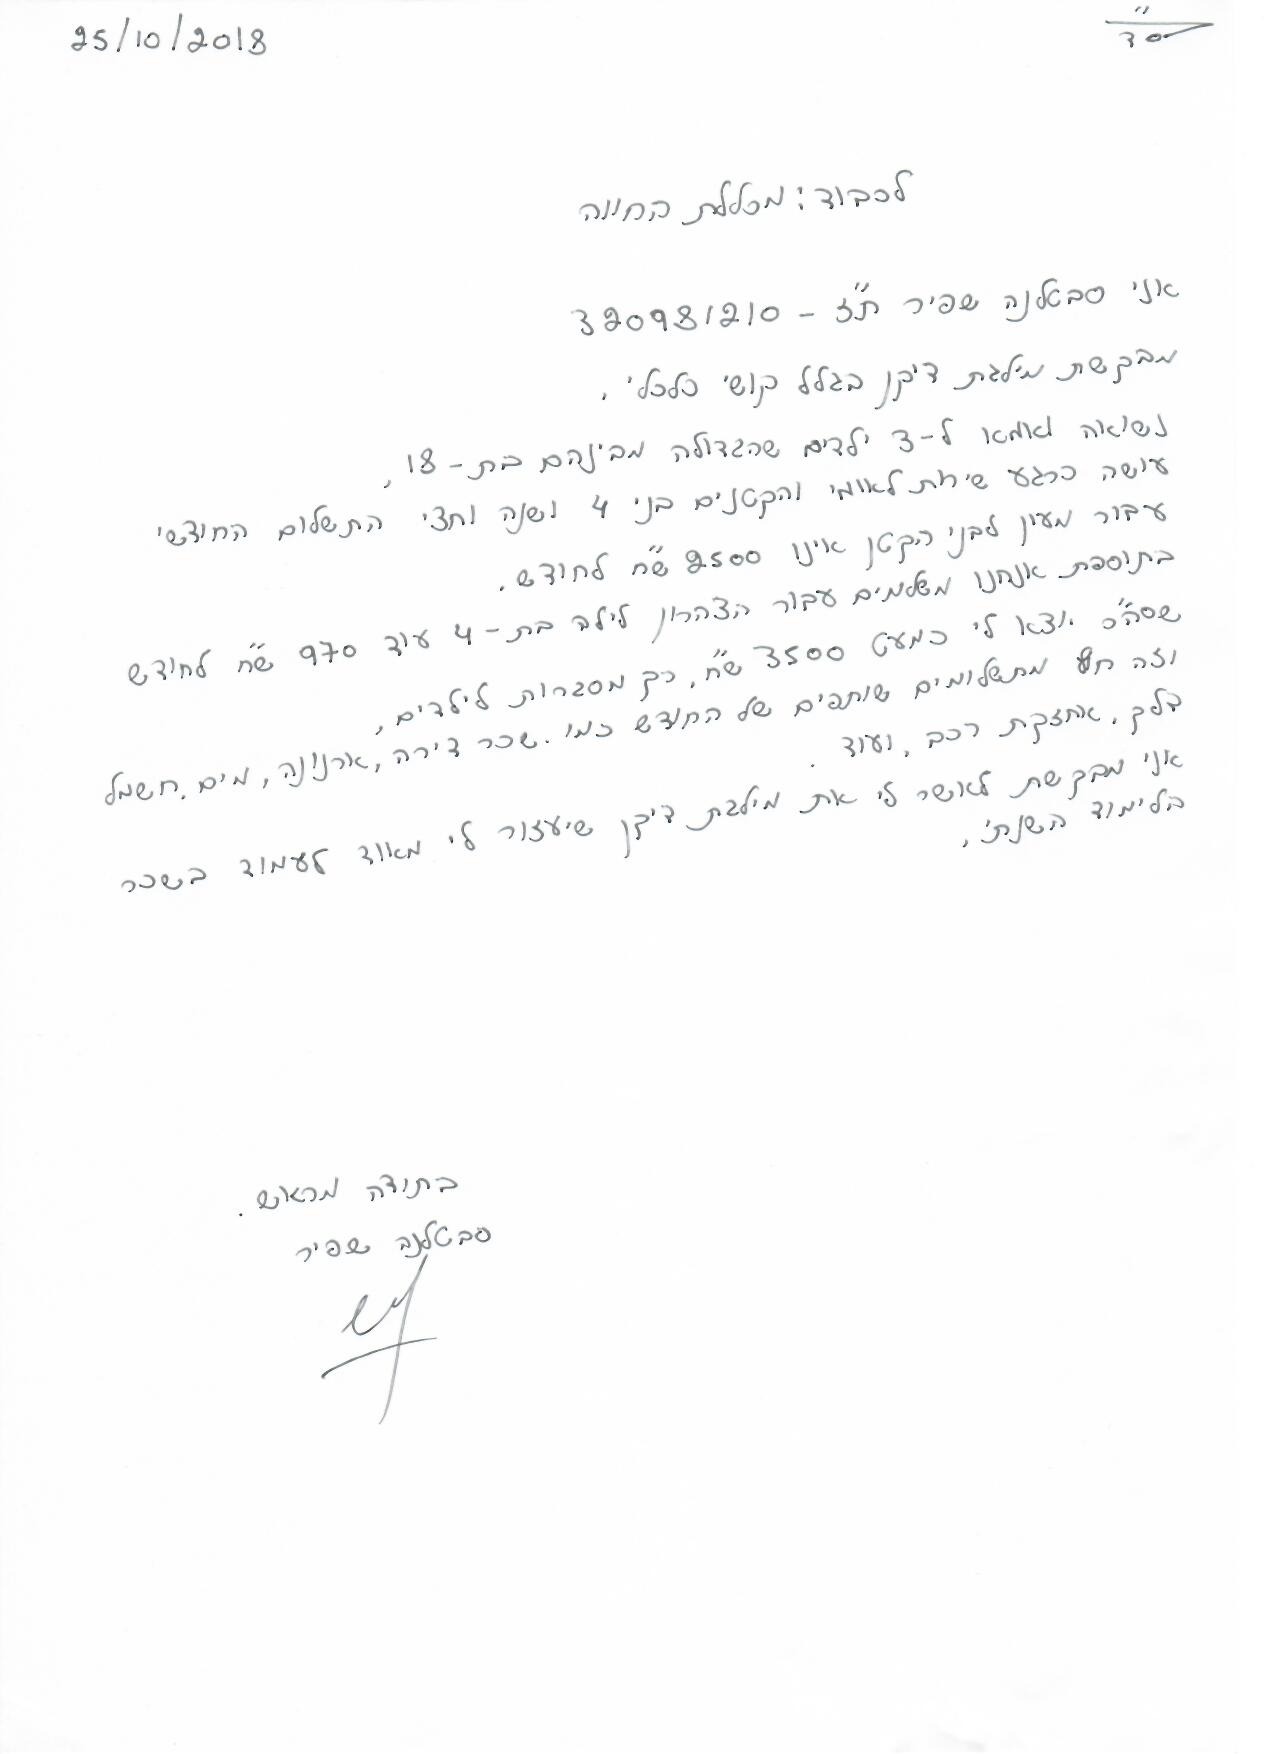 בס"ד
25/10/2018
לכבוד: מכללת החיונה
אני סבטלנה שפיר ת"ז - 320981210
מבקשת מילגת דיקן בגלל קושי כלכלי,
נשואה ואמא ל-3 ילדים שהגדולה מבינהם בת-18,
עושה כרגע שירות לאומי והקטנים בני 4 ושנה וחצי התשלום החודשי
עבור מעון לבני הקטן אינו 2500 ש"ח לחודש.
בתוספת אנחנו משלמים עבור הצהרון לילה בת-4 עוד 970 ש"ח לחודש
שסה"כ יוצא לי כמעט 3500 ש"ח, רק מסגרות לילדים,
וזה חוץ מתשלומים שותפים של החודש כמו. שכר דירה, ארנונה, מים, חשמל
דלק, אחזקת רכב, ועוד.
אני מבקשת לאשר לי את מילגת דיקן שיעזור לי מאוד לעמוד בשכר
הלימוד השנתי,
בתודה מראש.
סבטלנה שפיר